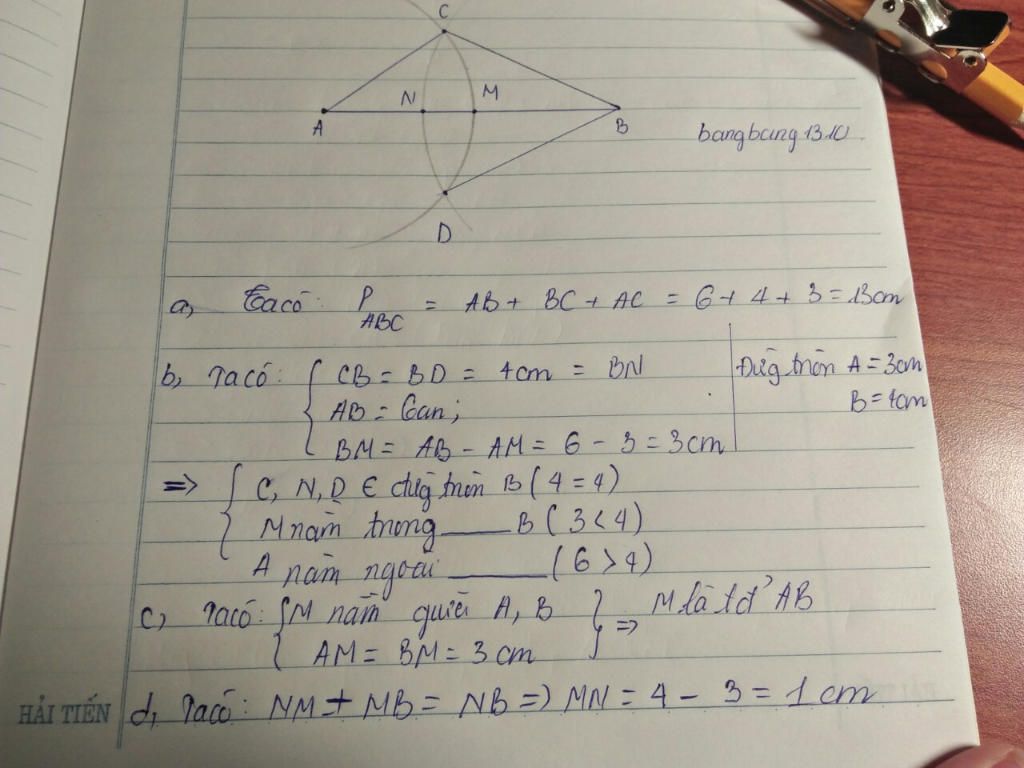 C
N M
A B
bangbang 1310
D
a, Ta có: P ABC = AB + BC + AC = 6 + 4 + 3 = 13cm
b, Ta có: { CB = BD = 4cm = BN
AB = 6cm;
BM = AB - AM = 6 - 3 = 3cm
Đường tròn A = 3cm
B = 4cm
=> { C, N, D ∈ đường tròn B ( 4 = 4)
M nằm trong ____ B ( 3 < 4)
A nằm ngoài ____ ( 6 > 4)
c, Ta có: { M nằm giữa A, B } => M là tđ' AB
AM = BM = 3 cm
d, Ta có: NM + MB = NB => MN = 4 - 3 = 1 cm
HẢI TIẾN